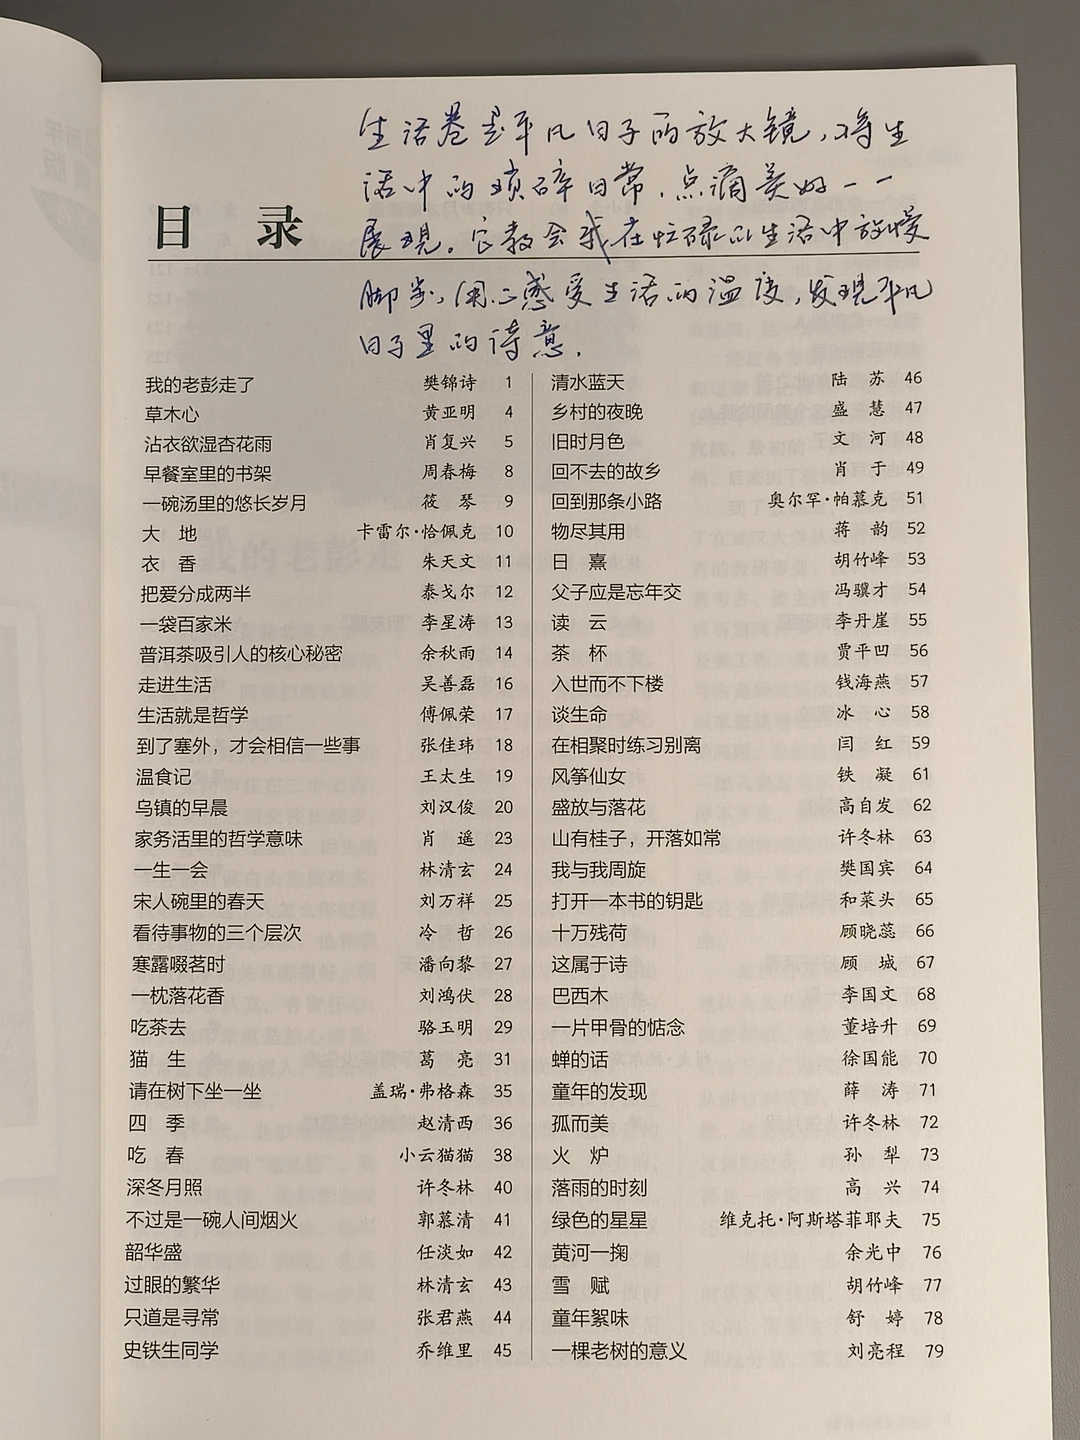 生活卷是平凡日子的放大镜，将生
活中的琐碎日常，点滴美好一一
展现。它教会我在忙碌的生活中放慢
脚步，用心感受生活的温度，发现平凡
日子里的诗意。
目 录
我的老彭走了 樊锦诗 1
草木心 黄亚明 4
沾衣欲湿杏花雨 肖复兴 5
早餐室里的书架 周春梅 8
一碗汤里的悠长岁月 筱 琴 9
大 地 卡雷尔·恰佩克 10
衣 香 朱天文 11
把爱分成两半 泰戈尔 12
一袋百家米 李星涛 13
普洱茶吸引人的核心秘密 余秋雨 14
走进生活 吴善磊 16
生活就是哲学 傅佩荣 17
到了塞外，才会相信一些事 张佳玮 18
温食记 王太生 19
乌镇的早晨 刘汉俊 20
家务活里的哲学意味 肖 遥 23
一生一会 林清玄 24
宋人碗里的春天 刘万祥 25
看待事物的三个层次 冷 哲 26
寒露啜茗时 潘向黎 27
一枕落花香 刘鸿伏 28
吃茶去 骆玉明 29
猫 生 葛 亮 31
请在树下坐一坐 盖瑞·弗格森 35
四 季 赵清西 36
吃 春 小云猫猫 38
深冬月照 许冬林 40
不过是一碗人间烟火 郭慕清 41
韶华盛 任淡如 42
过眼的繁华 林清玄 43
只道是寻常 张君燕 44
史铁生同学 乔维里 45
清水蓝天 陆 苏 46
乡村的夜晚 盛 慧 47
旧时月色 文 河 48
回不去的故乡 肖 于 49
回到那条小路 奥尔罕·帕慕克 51
物尽其用 蒋 韵 52
日 熹 胡竹峰 53
父子应是忘年交 冯骥才 54
读 云 李丹崖 55
茶 杯 贾平凹 56
入世而不下楼 钱海燕 57
谈生命 冰 心 58
在相聚时练习别离 闫 红 59
风筝仙女 铁 凝 61
盛放与落花 高自发 62
山有桂子，开落如常 许冬林 63
我与我周旋 樊国宾 64
打开一本书的钥匙 和菜头 65
十万残荷 顾晓蕊 66
这属于诗 顾 城 67
巴西木 李国文 68
一片甲骨的惦念 董培升 69
蝉的话 徐国能 70
童年的发现 薛 涛 71
孤而美 许冬林 72
火 炉 孙 犁 73
落雨的时刻 高 兴 74
绿色的星星 维克托·阿斯塔菲耶夫 75
黄河一掬 余光中 76
雪 赋 胡竹峰 77
童年絮味 舒 婷 78
一棵老树的意义 刘亮程 79